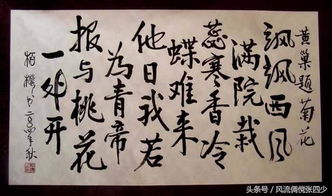 黄巢题菊花
飒飒西风
满院栽
蕊寒香冷
蝶难来
他日我若
為青帝
报与桃花
一处开
头条号 / 风流倜傥张四少